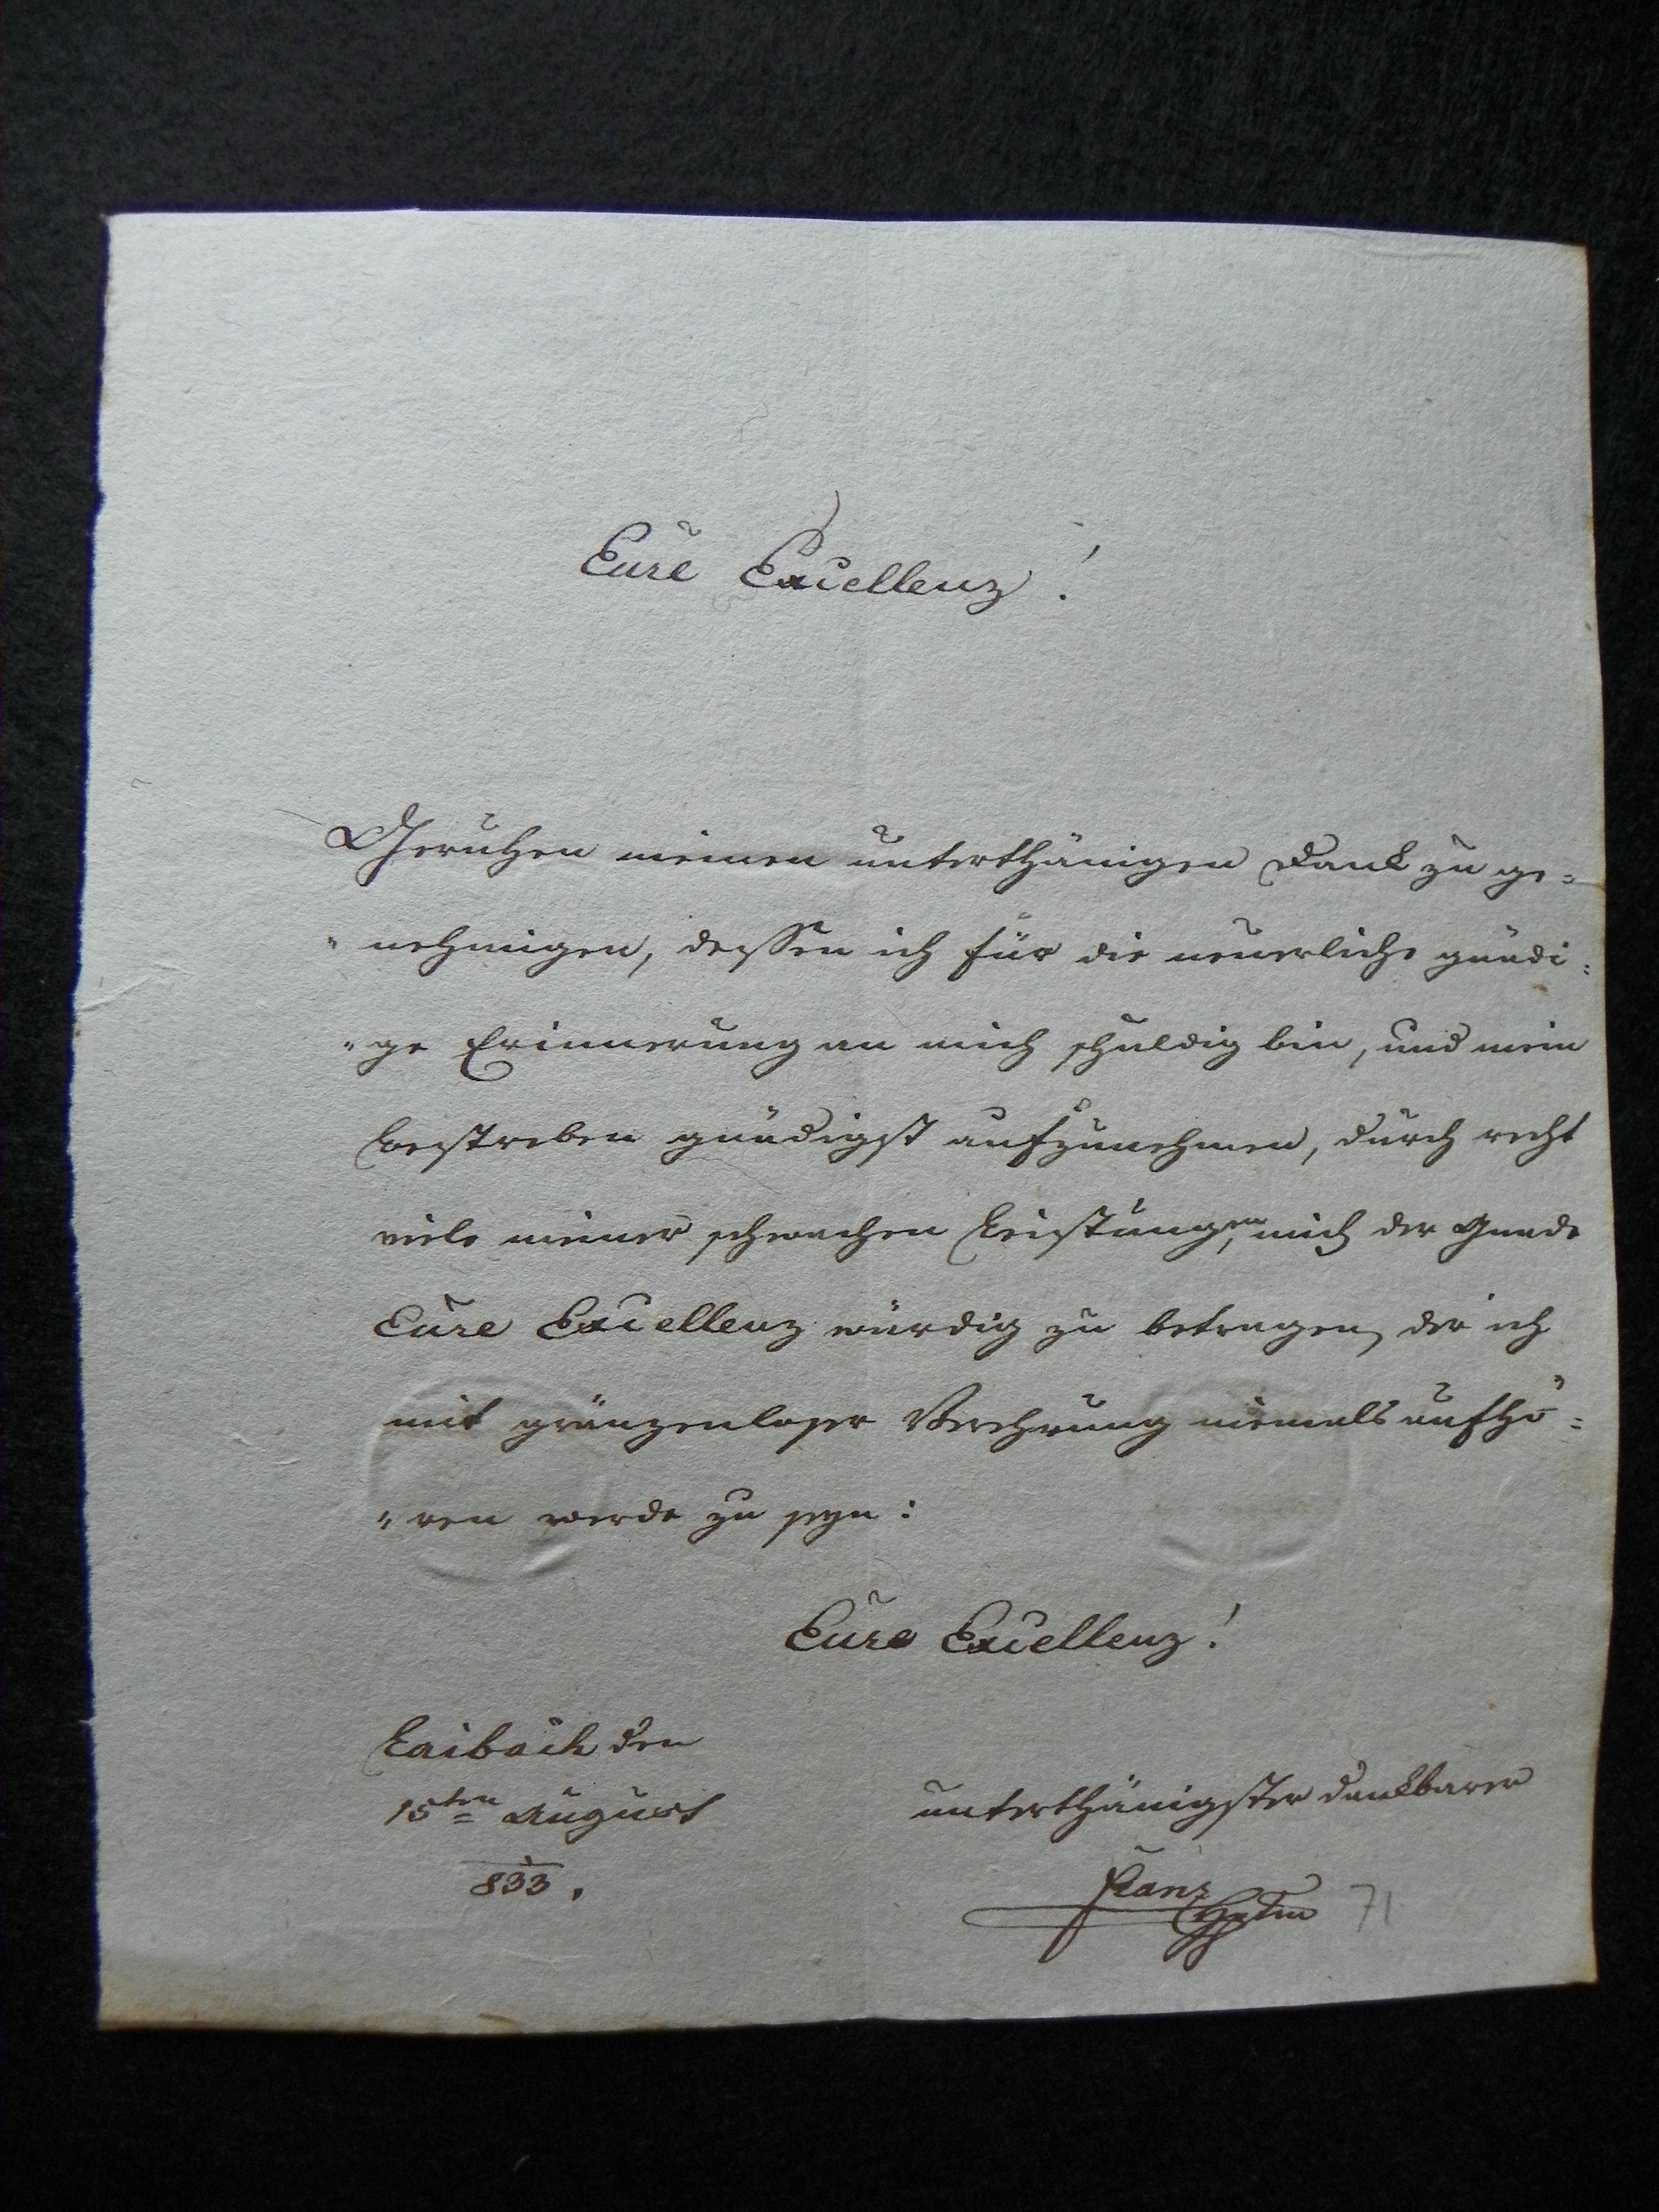 Eure Excellenz!
Geruhen meinen unterthänigen Dank zu ge=
"nehmigen, dessen ich für die neuerliche gnädi=
"ge Erinnerung an mich schuldig bin, und mein
Bestreben gnädigst aufzunehmen, durch recht
viele meiner schwachen Leistungen, mich der Gnade
Eure Excellenz würdig zu betragen, der ich
mit gränzenloser Verehrung niemals aufhö=
"ren werde zu seyn:
Eure Excellenz!
Laibach den
15ten August
833.
unterthänigster dankbarer
Franz
71